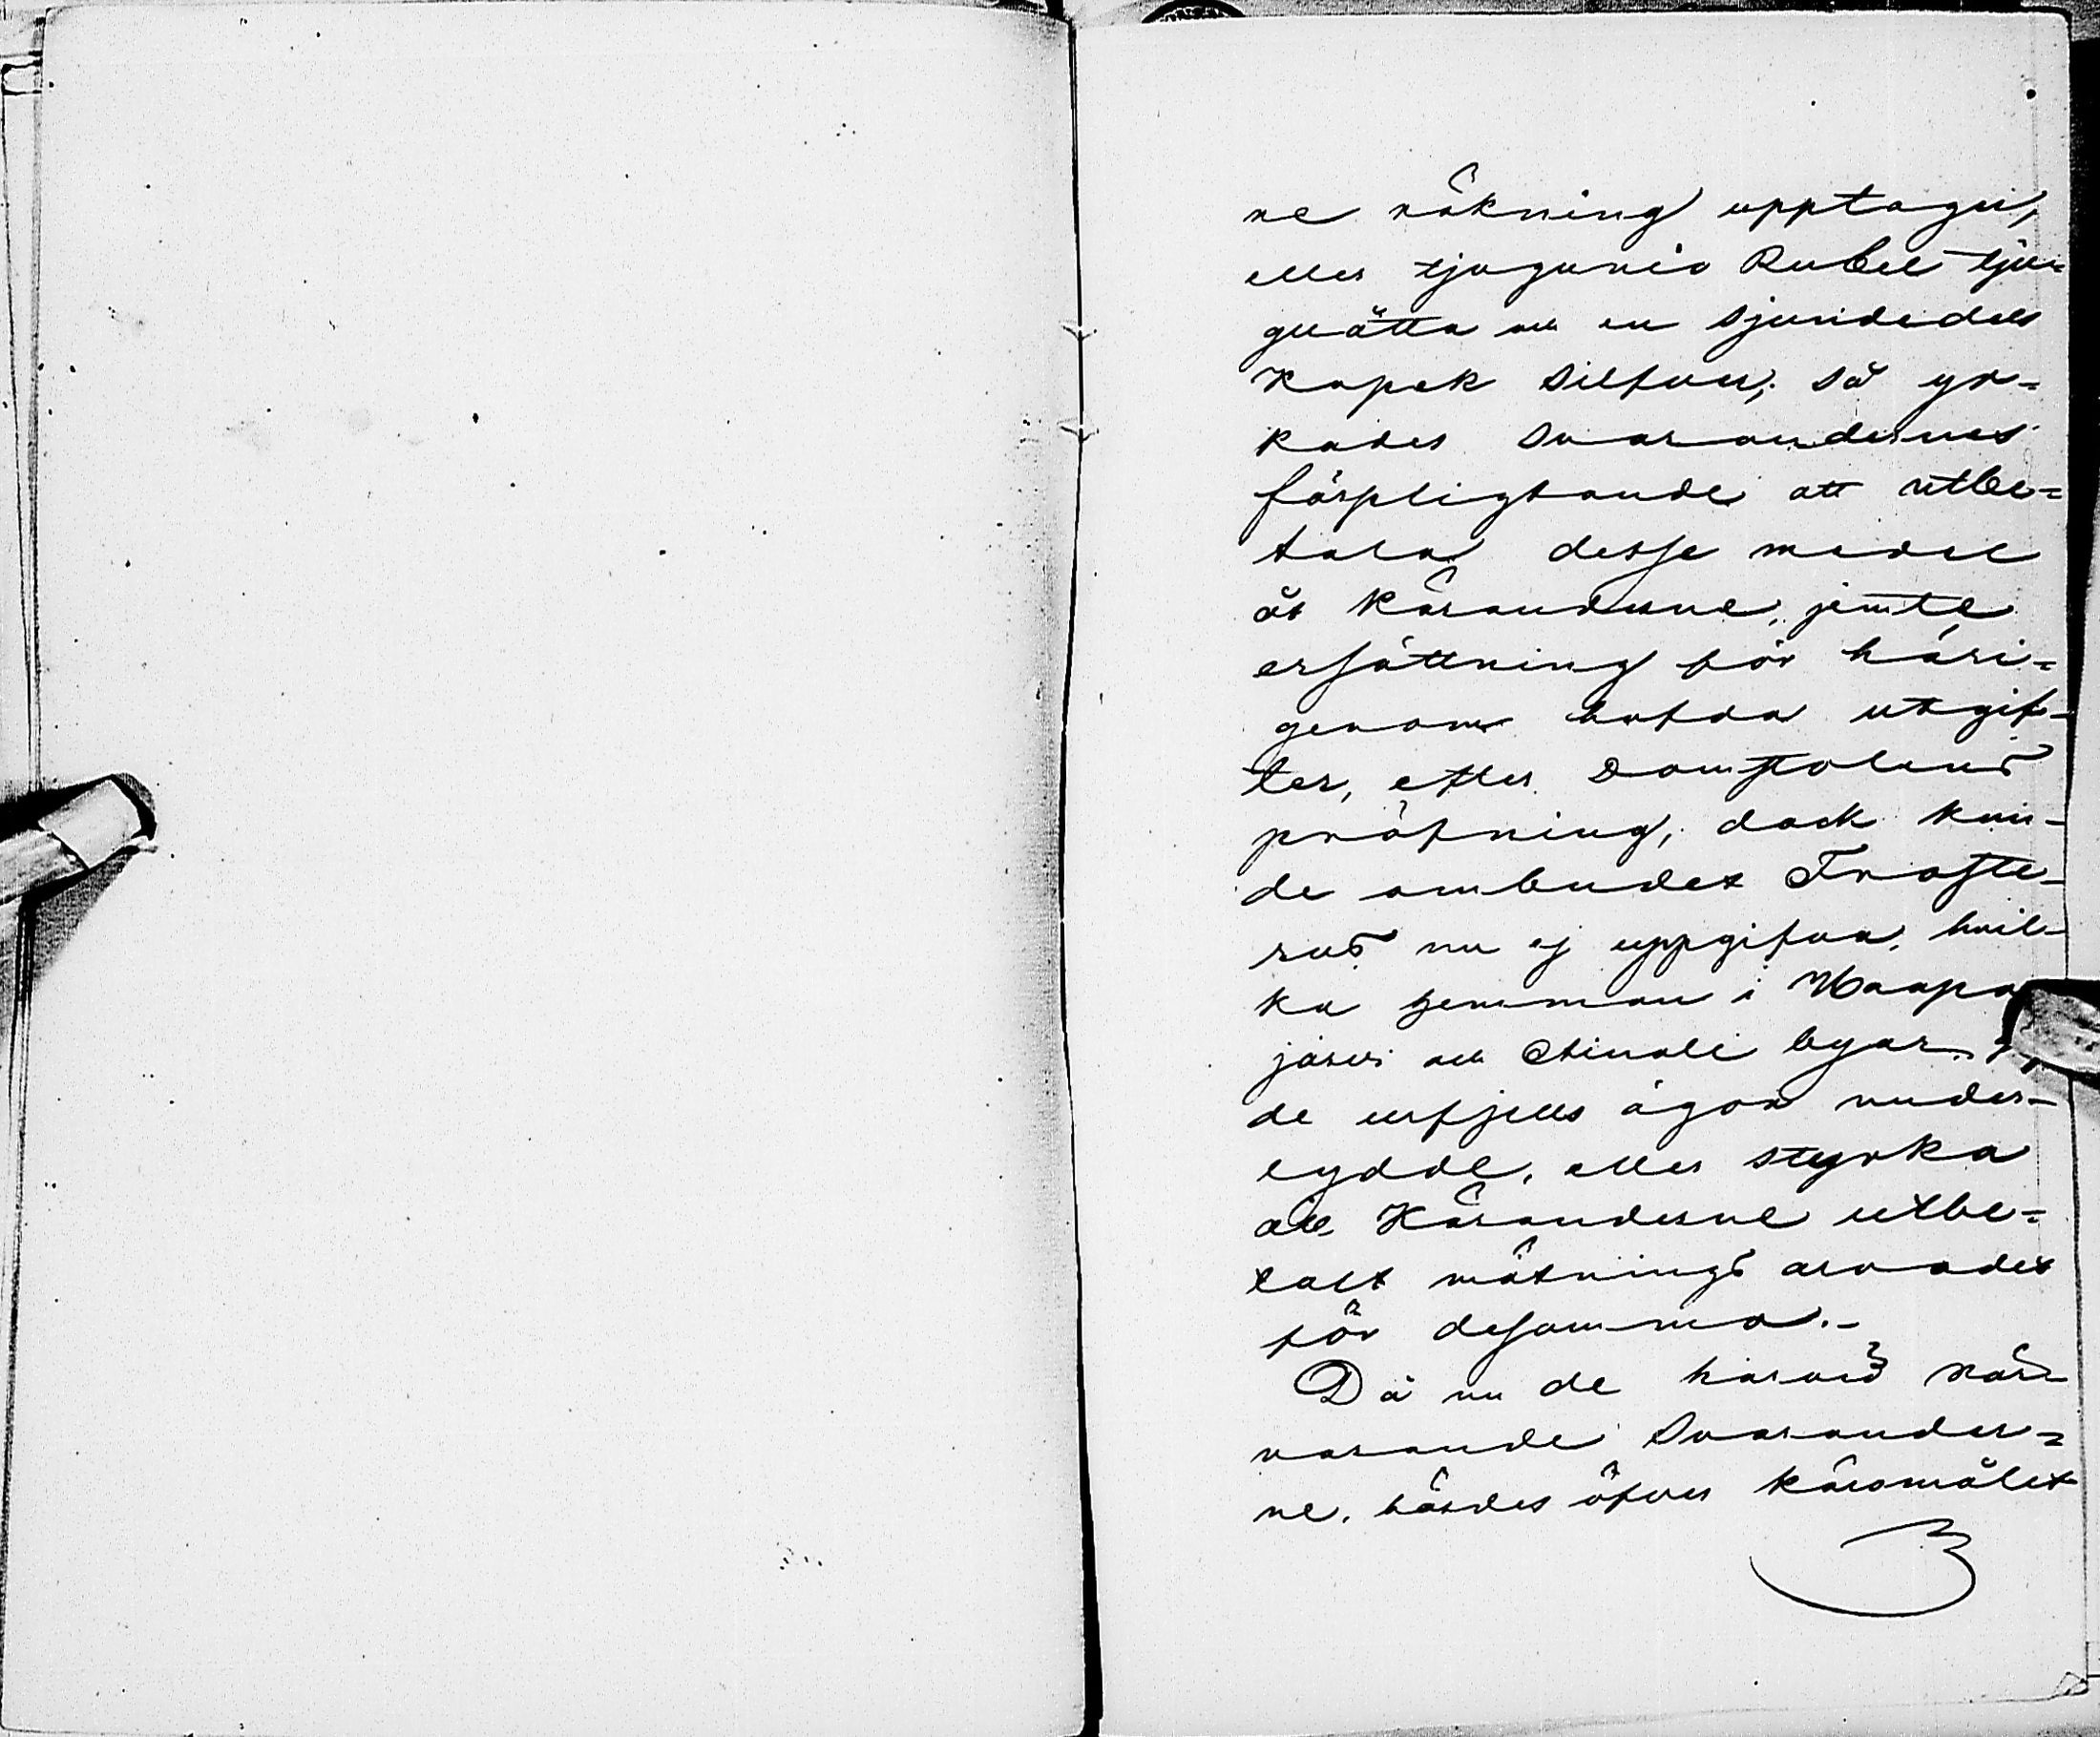 ne räkning upptagen,
eller tjugunio Rubel tju¬
guåtta och en sjundedels
Kopek Silfver; så yr¬
kades Svarandernes
förpligtande att utbe¬
tala desse medel
åt Käranderne, jemte
ersättning för häri¬
genom hafda utgif¬
ter, efter Domstolens
pröfning, dock kun¬
de ombudet Traste¬
rus nu ej uppgifva, hvil¬
ka hemman i Haapa
järvi och Ainali byar
de urfjells ägor under¬
lydde, eller styrka
att Käranderne utbe¬
talt mätnings arvodet
för desamma.-
Då nu de härvid när¬
varande Svarander¬
ne, hördes öfver käromålet